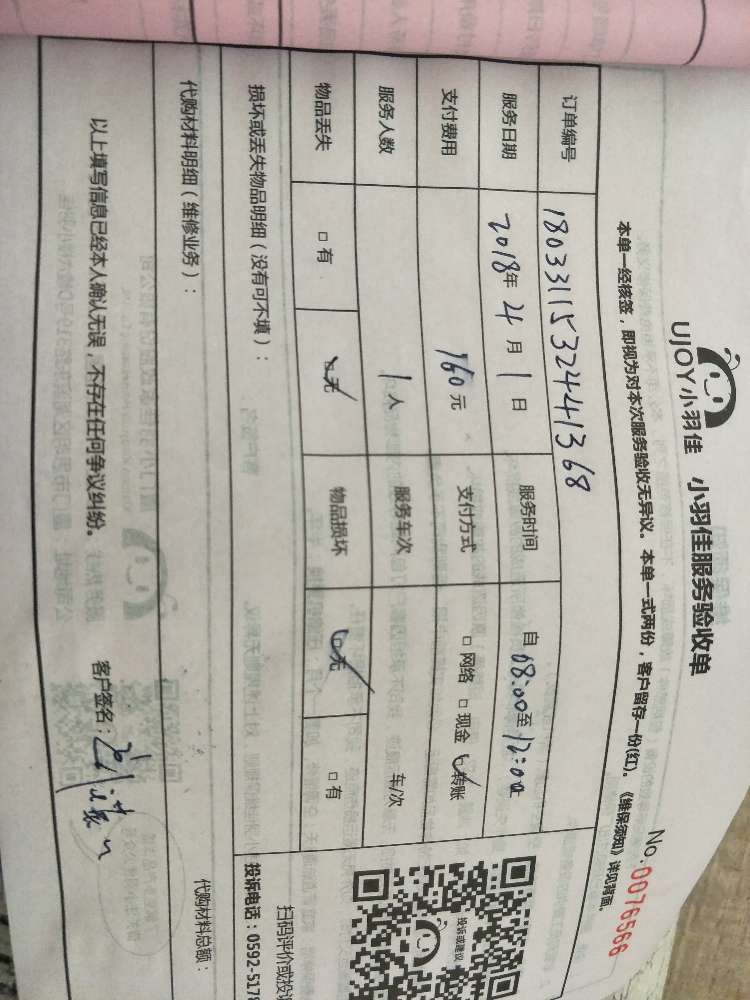 UJOY小羽佳 小羽佳服务验收单
No.0076566
本单一经核签，即视为对本次服务验收无异议。本单一式两份，客户留存一份(红)。《维保须知》详见背面。
订单编号 18033115324441368
服务日期 2018年 4 月 1 日 服务时间 自 08:00 至 12:00止
支付费用 160 元 支付方式 □网络 □现金 ☑转账
服务人数 1 人 服务车次 车/次
物品丢失 □有 ☑无 物品损坏 ☑无 □有
损坏或丢失物品明细（没有可不填）：
代购材料明细（维修业务）：
代购材料总额：
以上填写信息已经本人确认无误，不存在任何争议纠纷。 客户签名：
投诉或建议
扫码评价或投诉
投诉电话：0592-5178